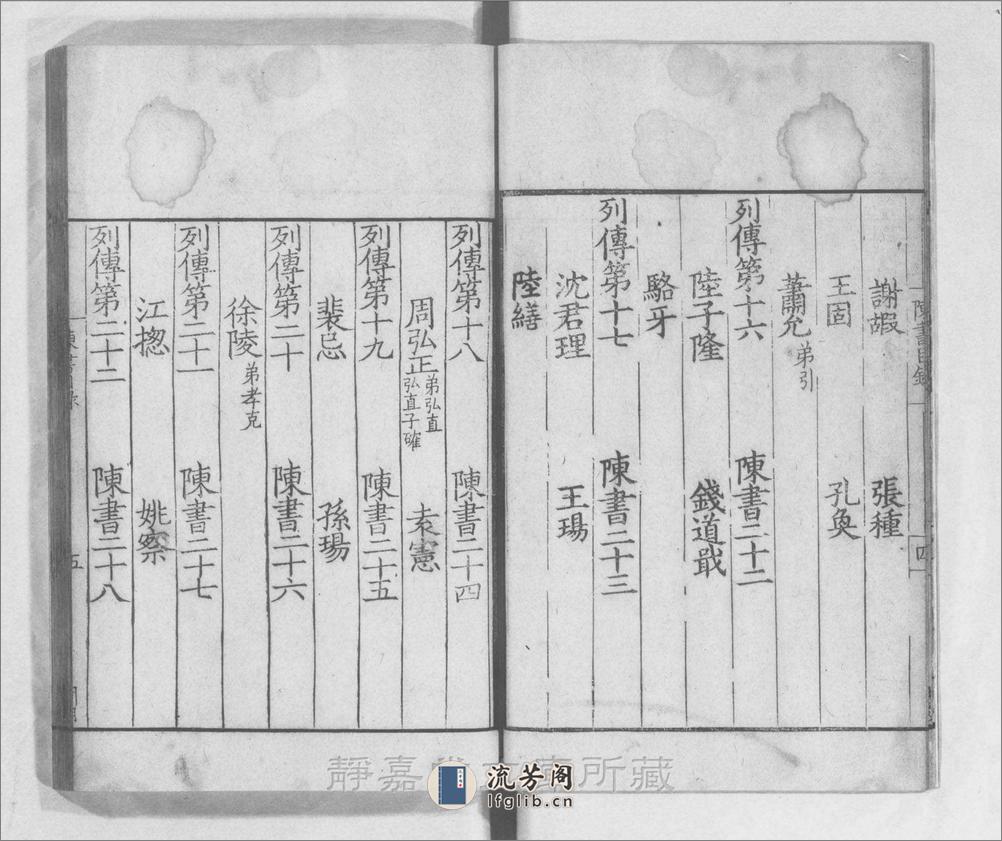 陳書目錄
四
謝嘏 張種
王固 孔奐
蕭允弟引
列傳第十六 陳書二十二
陸子隆 錢道戢
駱牙
列傳第十七 陳書二十三
沈君理 王瑒
陸繕
列傳第十八 陳書二十四
周弘正弟弘直 弘直子確 袁憲
列傳第十九 陳書二十五
裴忌 孫瑒
列傳第二十 陳書二十六
徐陵弟孝克
列傳第二十一 陳書二十七
江揔 姚察
列傳第二十二 陳書二十八
五
靜嘉堂文庫所藏
流芳阁
lfglib.cn